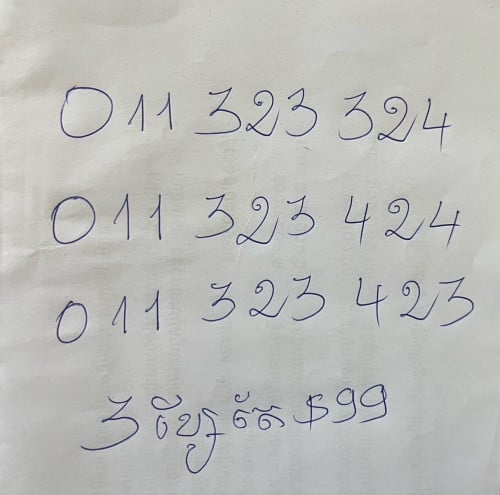 011 323 324
011 323 424
011 323 423
3 ខ្សែ តែ $99